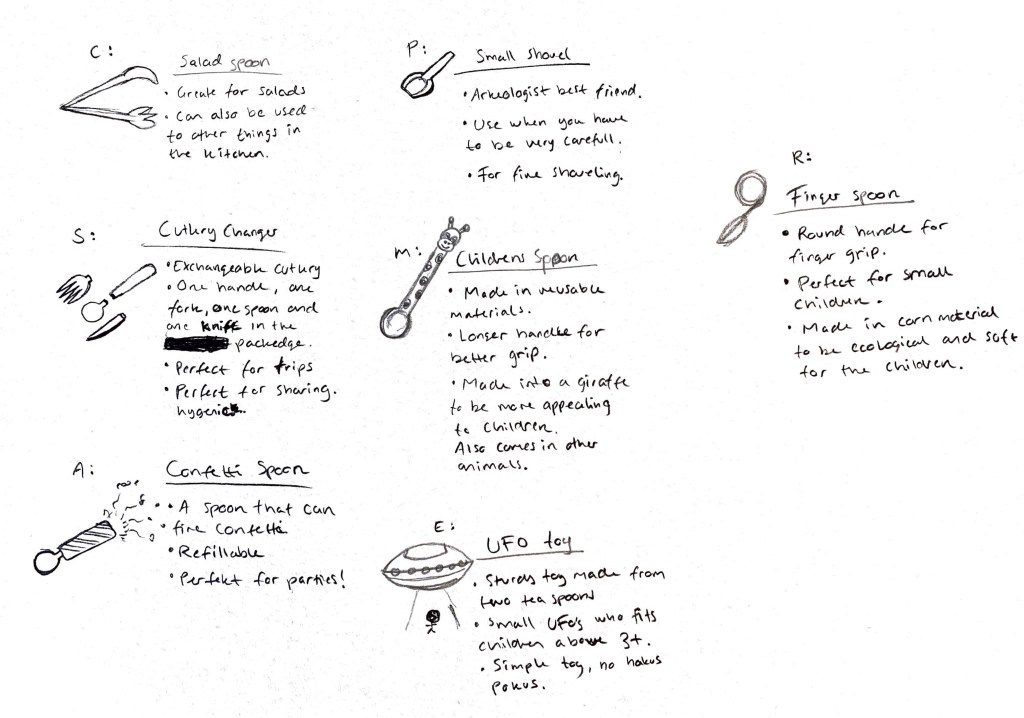 C:
Salad spoon
• Greate for salads
• Can also be used
to other things in
the kitchen.
S:
Cutlury Changer
• Exchangeable cutlury
• One handle, one
fork, one spoon and
one knife in the
packedge.
• Perfect for trips
• Perfect for sharing.
hygenic
A:
Confetti Spoon
• A spoon that can
fire confetti
• Refillable
• Perfekt for parties!
P:
Small Shovel
• Arkeologist best friend.
• Use when you have
to be very carefull.
• For fine shoveling.
M:
Childrens Spoon
• Made in reusable
materials.
• Longer handle for
better grip.
• Made into a giraffe
to be more appealing
to children.
Also comes in other
animals.
E:
UFO toy
• Sturdy toy made from
two tea spoons
• Small UFOs who fits
children above 3+.
• Simple toy, no hokus
pokus.
R:
Finger spoon
• Round handle for
finger grip.
• Perfect for small
children.
• Made in corn material
to be ecological and soft
for the children.